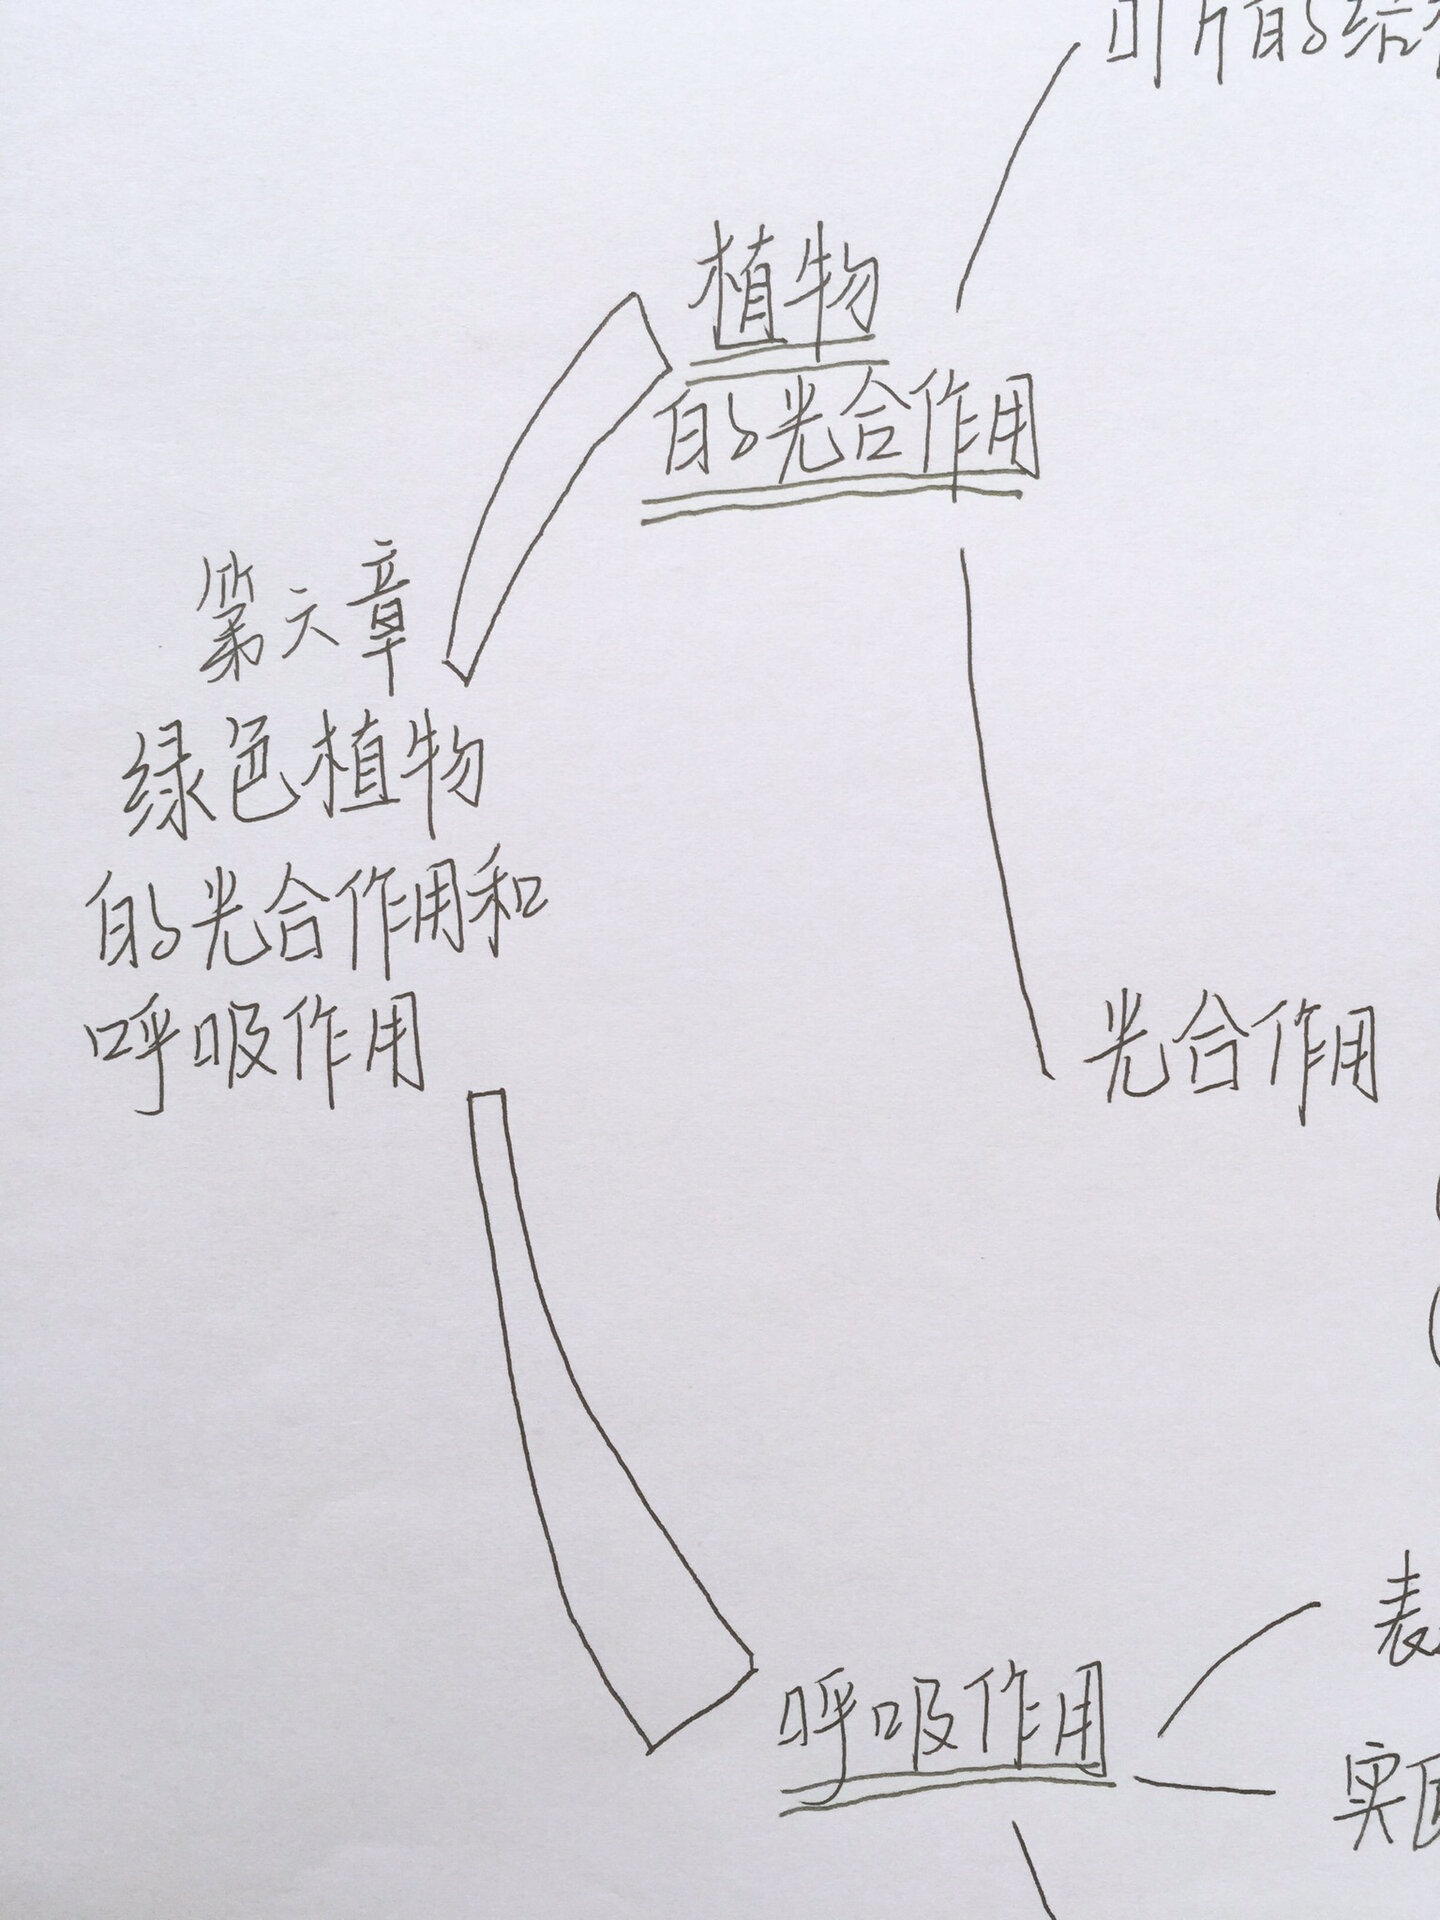 叶片的结
植物
的光合作用
第六章
绿色植物
的光合作用和
呼吸作用
光合作用
表
呼吸作用
实